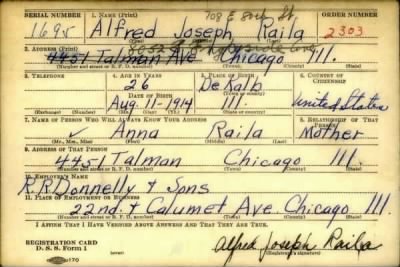 708 E 80th St
SERIAL NUMBER 1. NAME (Print) ORDER NUMBER
1695 Alfred Joseph Raila 2303
2. ADDRESS (Print)
4451 Talman Ave Chicago Ill.
(Number and street or R. F. D. number) (Town) (County) (State)
3. TELEPHONE 4. AGE IN YEARS 5. PLACE OF BIRTH 6. COUNTRY OF CITIZENSHIP
26 DeKalb
DATE OF BIRTH
Aug. 11-1914 Ill. United States
(Exchange) (Number) (Mo.) (Day) (Yr.) (State or country)
7. NAME OF PERSON WHO WILL ALWAYS KNOW YOUR ADDRESS 8. RELATIONSHIP OF THAT PERSON
Anna Raila Mother
(Mr., Mrs., Miss) (First) (Middle) (Last)
9. ADDRESS OF THAT PERSON
4451 Talman Chicago Ill.
(Number and street or R. F. D. number) (Town) (County) (State)
10. EMPLOYER'S NAME
R.R Donnelly + Sons
11. PLACE OF EMPLOYMENT OR BUSINESS
22nd + Calumet Ave. Chicago Ill.
(Number and street or R. F. D. number) (Town) (County) (State)
I AFFIRM THAT I HAVE VERIFIED ABOVE ANSWERS AND THAT THEY ARE TRUE.
REGISTRATION CARD
D. S. S. Form 1
Alfred Joseph Raila
(Registrant's signature)